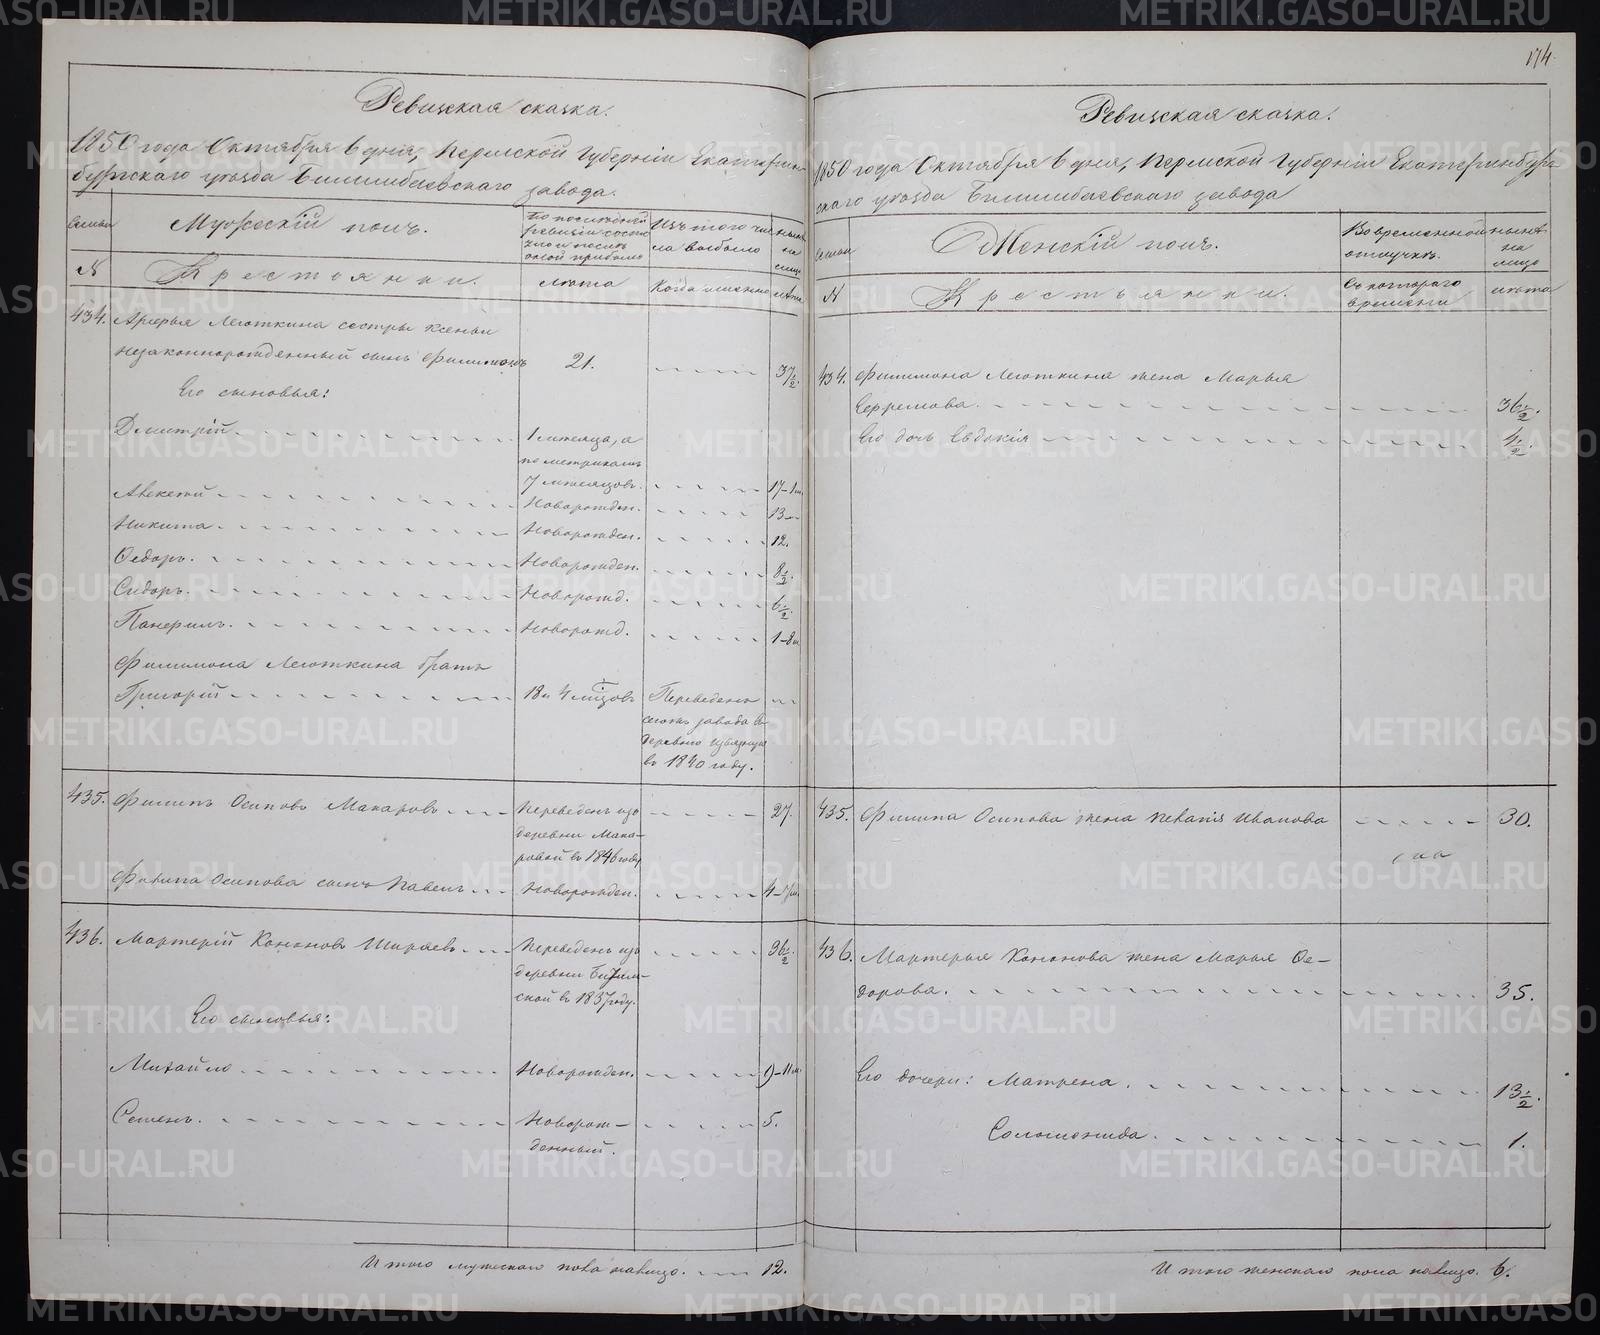 174.
Ревизская сказка.
1850 года Октября 6 дня, Пермской Губерніи Екатерин-
бургскаго уѣзда Билимбаевскаго завода.
Семьи
Мужескій полъ.
По послѣдней ревизіи состояло и послѣ оной прибыло
Изъ того числа выбыло
Нынѣ на лицо
N
Крестьяне.
лѣта
Когда именно
лѣта
434.
сестры Ксеньи
незаконнорожденный сынъ Филимонъ
21.
37½.
Его сыновья:
Дмитрій
1 мѣсяца, а
по метрикамъ
7 мѣсяцовъ.
17-1м.
Алексѣй
Новорожден.
13
Никита
Новорожден.
12.
Ѳедоръ
Новорожден.
8½.
Сидоръ
Новорожд.
6½.
Панфилъ
Новорожд.
1-8м
Филимона Леготкина братъ
Григорій
18 и 4 мѣсцовъ
Переведенъ
завода въ
деревню
въ 1840 году.
435.
Филипъ Осиповъ Макаровъ
Переведенъ изъ
деревни Мака-
ровой въ 1846 году
27.
Филипа Осипова сынъ Павелъ
Новорожден.
4-7м.
436.
Мартерій Канановъ Ширяевъ
Переведенъ изъ
деревни
въ 1837 году.
36½.
Его сыновья:
Михайло
Новорожден.
9-11м.
Семенъ
Новорож-
денный.
5.
Итого мужескаго пола налицо. 12.
Ревизская сказка.
1850 года Октября 6 дня, Пермской Губерніи Екатеринбург-
скаго уѣзда Билимбаевскаго завода
Семьи
Женскій полъ.
Во временной отлучкѣ.
Нынѣ на лицо
N
Крестьянки.
Съ котораго времени
лѣта
434.
Филимона Леготкина жена Марья
Ефремова.
36½.
Его дочь Евдокія
4½.
435.
Филипа Осипова жена Пелагія Иванова
30.
436.
Мартерья Кананова жена Марья Ѳе-
дорова.
35.
Его дочери: Матрена.
13½.
Соломонида.
1.
Итого женскаго пола налицо. 6.
METRIKI.GASO-URAL.RU